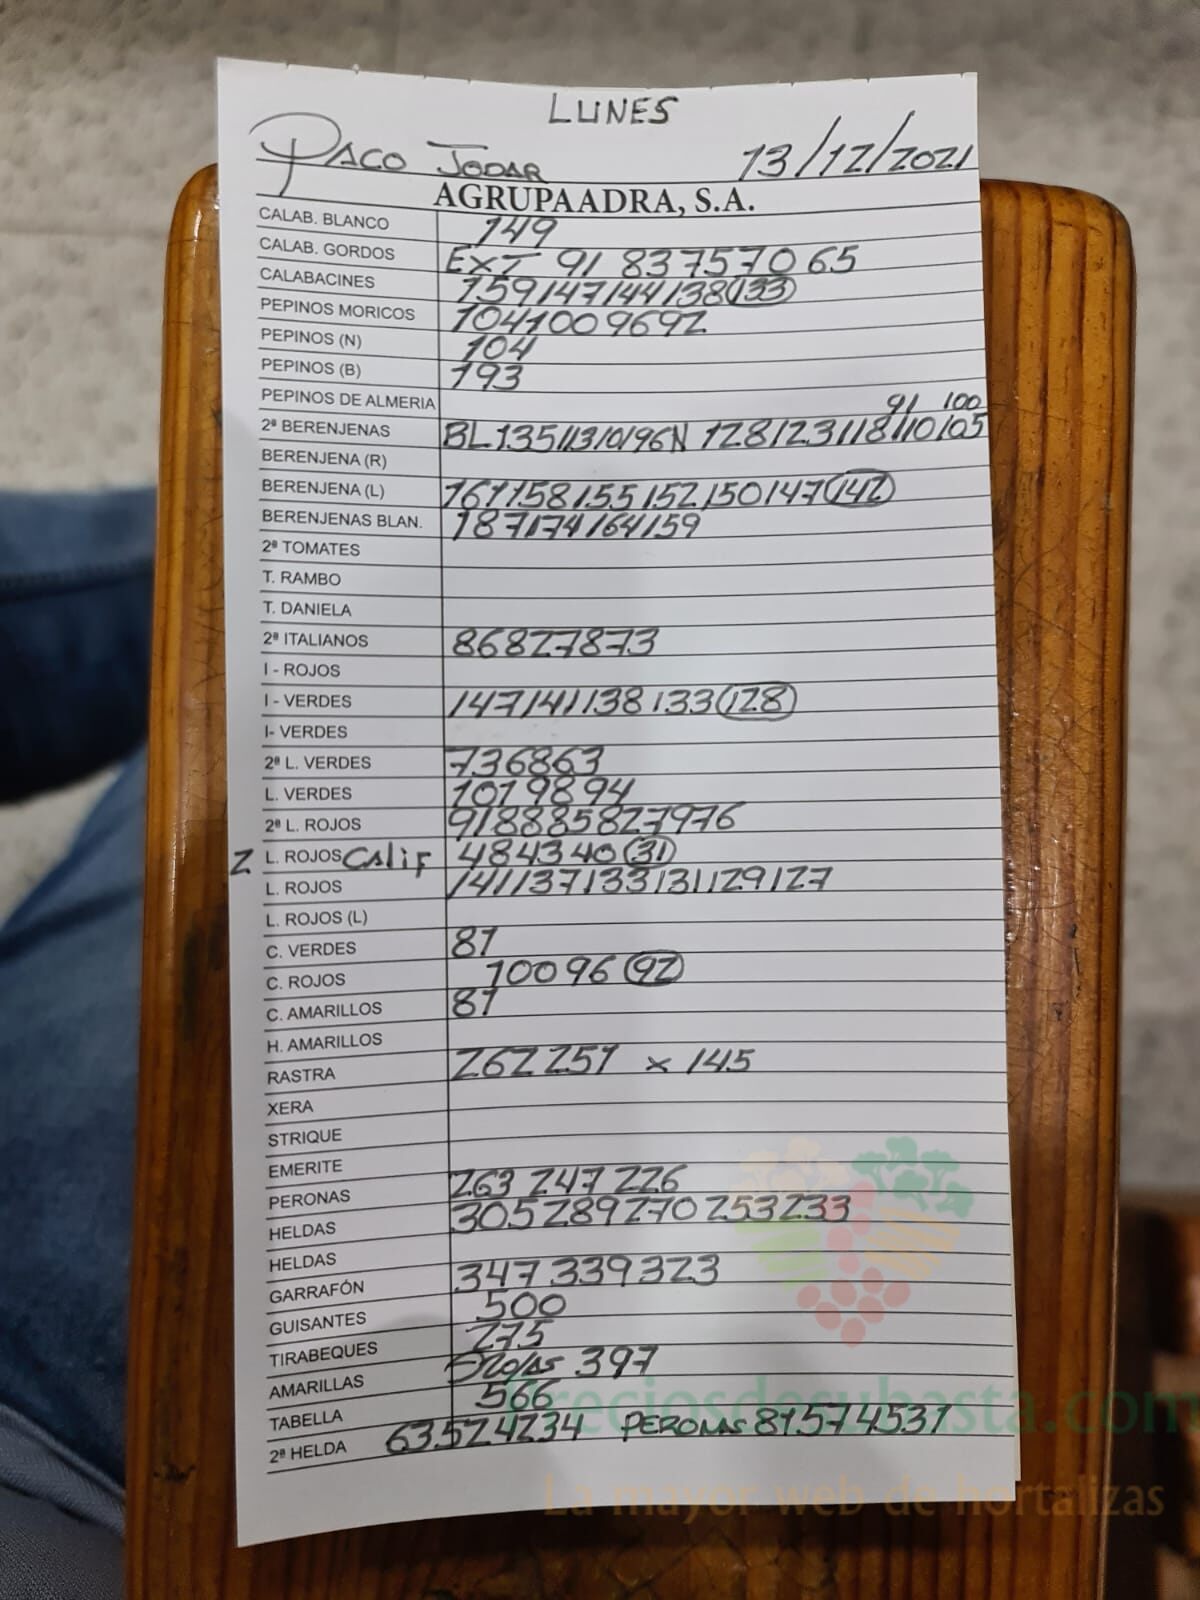 LUNES
PACO JODAR 13/12/2021
AGRUPAADRA, S.A.
CALAB. BLANCO 149
CALAB. GORDOS EXT 91 83 75 70 65
CALABACINES 159 147 144 138 133
PEPINOS MORICOS 104 100 96 92
PEPINOS (N) 104
PEPINOS (B) 193
PEPINOS DE ALMERIA 91 100
2ª BERENJENAS BL 135 113 101 96 N 128 123 118 110 105
BERENJENA (R)
BERENJENA (L) 161 158 155 152 150 147 142
BERENJENAS BLAN. 187 174 164 159
2ª TOMATES
T. RAMBO
T. DANIELA
2ª ITALIANOS 86 82 78 73
I - ROJOS
I - VERDES 147 141 138 133 128
I- VERDES
2ª L. VERDES 73 68 63
L. VERDES 101 98 94
2ª L. ROJOS 91 88 85 82 79 76
2 L. ROJOS CALIF 48 43 40 31
L. ROJOS 141 137 133 131 129 127
L. ROJOS (L)
C. VERDES 81
C. ROJOS 100 96 92
C. AMARILLOS 81
H. AMARILLOS
RASTRA 262 251 x 145
XERA
STRIQUE
EMERITE
PERONAS 263 247 226
HELDAS 305 289 270 253 233
HELDAS
GARRAFÓN 347 339 323
GUISANTES 500
TIRABEQUES 275
AMARILLAS 397
TABELLA 566
2ª HELDA 63 52 42 34 PERONAS 81 57 45 31
Preciosdesubasta.com
La mayor web de hortalizas